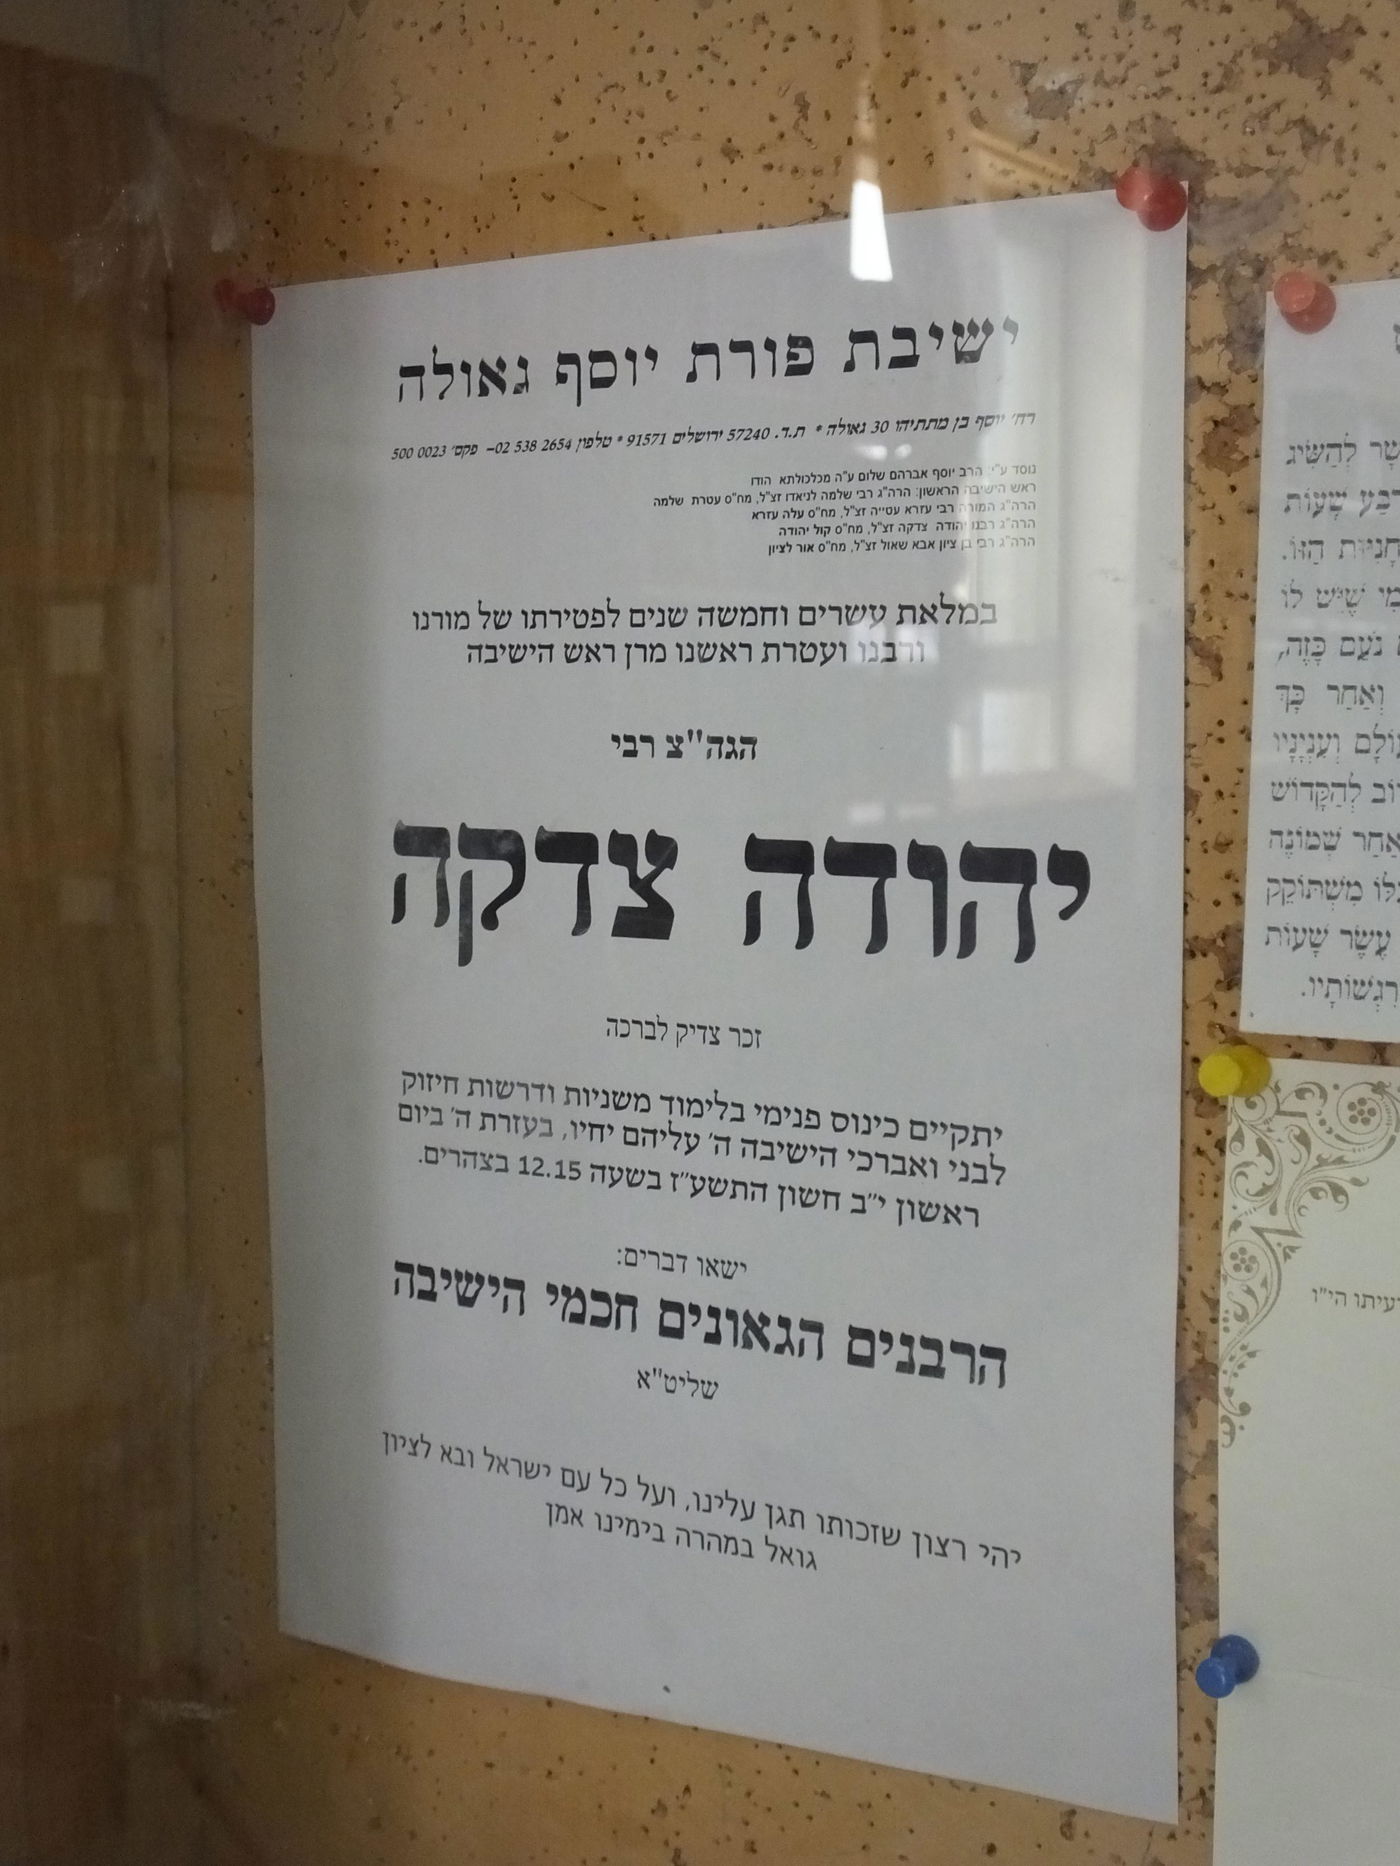 ישיבת פורת יוסף גאולה
רח׳ יוסף בן מתתיהו 30 גאולה * ת.ד. 57240 ירושלים 91571 * טלפון 2654 538 02– פקס׳ 0023 500
נוסד ע"י: הרב יוסף אברהם שלום ע"ה מכלכולתא הודו
ראש הישיבה הראשון: הרה"ג רבי שלמה לניאדו זצ"ל, מח"ס עטרת שלמה
הרה"ג המורה רבי עזרא עטייה זצ"ל, מח"ס עלה עזרא
הרה"ג רבנו יהודה צדקה זצ"ל, מח"ס קול יהודה
הרה"ג רבי בן ציון אבא שאול זצ"ל, מח"ס אור לציון
במלאת עשרים וחמשה שנים לפטירתו של מורנו
ורבנו ועטרת ראשנו מרן ראש הישיבה
הגה"צ רבי
יהודה צדקה
זכר צדיק לברכה
יתקיים כינוס פנימי בלימוד משניות ודרשות חיזוק
לבני ואברכי הישיבה ה׳ עליהם יחיו, בעזרת ה׳ ביום
ראשון י״ב חשון התשע״ז בשעה 12.15 בצהרים.
ישאו דברים:
הרבנים הגאונים חכמי הישיבה
שליט"א
יהי רצון שזכותו תגן עלינו, ועל כל עם ישראל ובא לציון
גואל במהרה בימינו אמן
לְהַשִּׂיג
שָׁעוֹת
הַזּוֹ.
שֶׁיֵּשׁ לוֹ
נֹעַם כָּזֶה,
וְאַחַר כָּךְ
וְעִנְיָנָיו
לְהַקָּדוֹשׁ
שְׁמוֹנֶה
מִשְׁתּוֹקֵק
עֶשֶׂר שָׁעוֹת
הי"ו